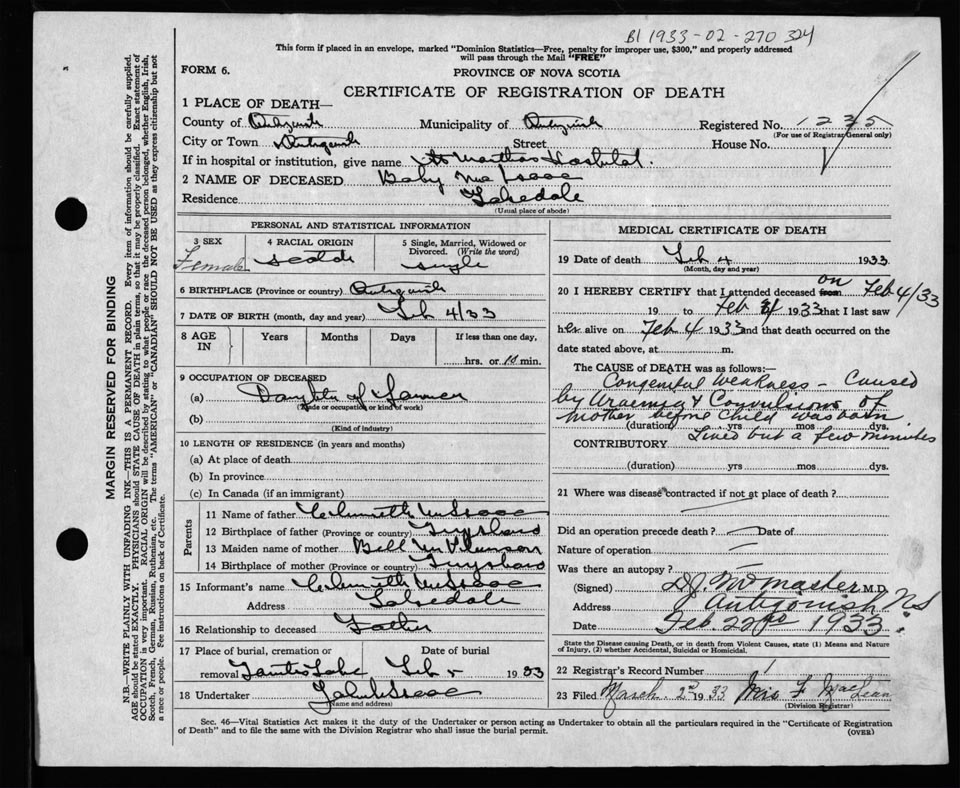 B1 1933-02-270 324
This form if placed in an envelope, marked "Dominion Statistics—Free, penalty for improper use, $300," and properly addressed
will pass through the Mail "FREE"
FORM 6.
PROVINCE OF NOVA SCOTIA
CERTIFICATE OF REGISTRATION OF DEATH
1 PLACE OF DEATH—
County of Antigonish Municipality of Antigonish Registered No. 1235
(For use of Registrar General only)
City or Town Antigonish Street House No.
If in hospital or institution, give name St Marthas Hospital.
2 NAME OF DECEASED Baby McIsaac
Residence Lakedale
(Usual place of abode)
PERSONAL AND STATISTICAL INFORMATION
3 SEX Female
4 RACIAL ORIGIN Scotch
5 Single, Married, Widowed or Divorced. (Write the word) single
6 BIRTHPLACE (Province or country) Antigonish
7 DATE OF BIRTH (month, day and year) Feb 4/33
8 AGE IN Years Months Days If less than one day,
hrs. or 10 min.
9 OCCUPATION OF DECEASED
(a) Daughter of Farmer
(Trade or occupation or kind of work)
(b)
(Kind of industry)
10 LENGTH OF RESIDENCE (in years and months)
(a) At place of death
(b) In province
(c) In Canada (if an immigrant)
Parents
11 Name of father McIsaac
12 Birthplace of father (Province or country) Guysboro
13 Maiden name of mother Bell
14 Birthplace of mother (Province or country) Guysboro
15 Informant's name McIsaac
Address Lakedale
16 Relationship to deceased Father
17 Place of burial, cremation or removal Date of burial
Lake Feb 5 1933
18 Undertaker
(Name and address)
MEDICAL CERTIFICATE OF DEATH
19 Date of death Feb 4 1933
(Month, day and year)
20 I HEREBY CERTIFY that I attended deceased from on Feb 4/33
19 to Feb 4 1933 that I last saw
her alive on Feb 4 1933 and that death occurred on
date stated above, at m.
The CAUSE of DEATH was as follows:
Congenital Weakness - Caused
by Uraemia & Convulsions of
Mother before child was born
(duration) yrs mos dys.
Lived but a few minutes
CONTRIBUTORY
(duration) yrs mos dys.
21 Where was disease contracted if not at place of death?
Did an operation precede death? Date of
Nature of operation
Was there an autopsy?
(Signed) McMaster M.D.
Address Antigonish N.S.
Date Feb 22nd 1933
State the Disease causing Death, or in death from Violent Causes, state (1) Means and Nature of Injury, (2) whether Accidental, Suicidal or Homicidal.
22 Registrar's Record Number 1
23 Filed March 2nd 1933 Mrs F MacLean
(Division Registrar)
Sec. 46—Vital Statistics Act makes it the duty of the Undertaker or person acting as Undertaker to obtain all the particulars required in the "Certificate of Registration
of Death" and to file the same with the Division Registrar who shall issue the burial permit.
(OVER)
MARGIN RESERVED FOR BINDING
N.B.—WRITE PLAINLY WITH UNFADING INK—THIS IS A PERMANENT RECORD. Every item of information should be carefully supplied.
AGE should be stated EXACTLY. PHYSICIANS should STATE CAUSE OF DEATH in plain terms, so that it may be properly classified. Exact statement of
OCCUPATION is very important. RACIAL ORIGIN will be described by stating to what people or race the deceased person belonged, whether English, Irish,
Scotch, French, German, Russian, Ruthenian, etc. The terms "AMERICAN" or "CANADIAN" SHOULD NOT BE USED as they express citizenship but not
a race or people. See instructions on back of Certificate.